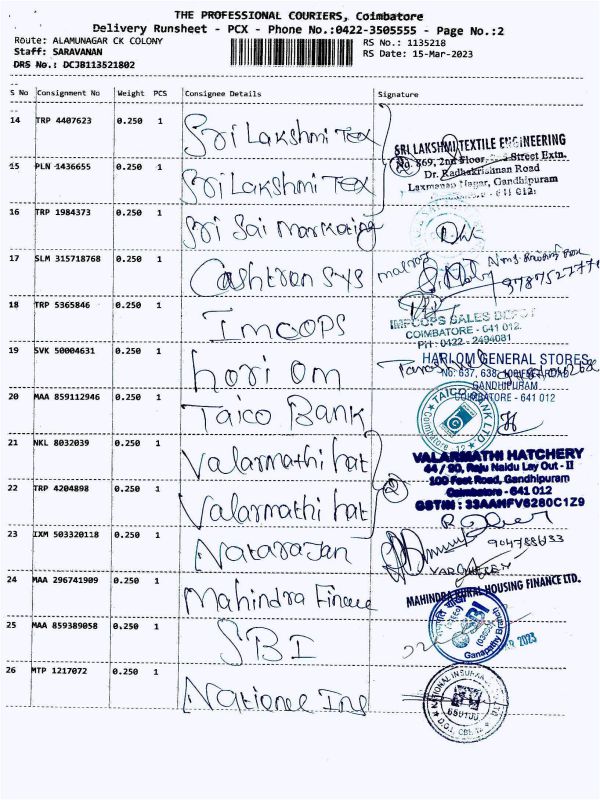 THE PROFESSIONAL COURIERS, Coimbatore
Delivery Runsheet - PCX - Phone No.:0422-3505555 - Page No.:2
Route: ALAMUNAGAR CK COLONY RS No.: 1135218
Staff: SARAVANAN RS Date: 15-Mar-2023
DRS No.: DCJB113521802
S No Consignment No Weight PCS Consignee Details Signature
14 TRP 4407623 0.250 1 Sri Lakshmi Tex
SRI LAKSHMI TEXTILE ENGINEERING
No. 869, 2nd Floor, Street Extn.
15 PLN 1436655 0.250 1 Sri Lakshmi Tex
2
Dr. Radhakrishnan Road
Laxmanan Nagar, Gandhipuram
641 012.
16 TRP 1984373 0.250 1 Sri Sai Marketing
17 SLM 315718768 0.250 1 Cashtron sys
18 TRP 5365846 0.250 1 Imcops
IMPCOPS SALES DEPOT
COIMBATORE - 641 012.
PH : 0422 - 2494081
19 SVK 50004631 0.250 1 hori om
HARI OM GENERAL STORES
No: 637, 638,
GANDHIPURAM
COIMBATORE - 641 012
20 MAA 859112946 0.250 1 Taico Bank
TAICO BANK LTD
Coimbatore 12
21 NKL 8032039 0.250 1 Valarmathi hat
VALARMATHI HATCHERY
44 / 90, Raju Naidu Lay Out - II
100 Feet Road, Gandhipuram
Coimbatore - 641 012
GSTIN : 33AANFV6280C1Z9
22 TRP 4204898 0.250 1 Valarmathi hat
2
23 IXM 503320118 0.250 1 Natarajan
24 MAA 296741909 0.250 1 Mahindra Finance
MAHINDRA RURAL HOUSING FINANCE LTD.
25 MAA 859389058 0.250 1 SBI
SBI
Ganapathy Branch
2023
26 MTP 1217072 0.250 1 National Ins
NATIONAL INSURANCE